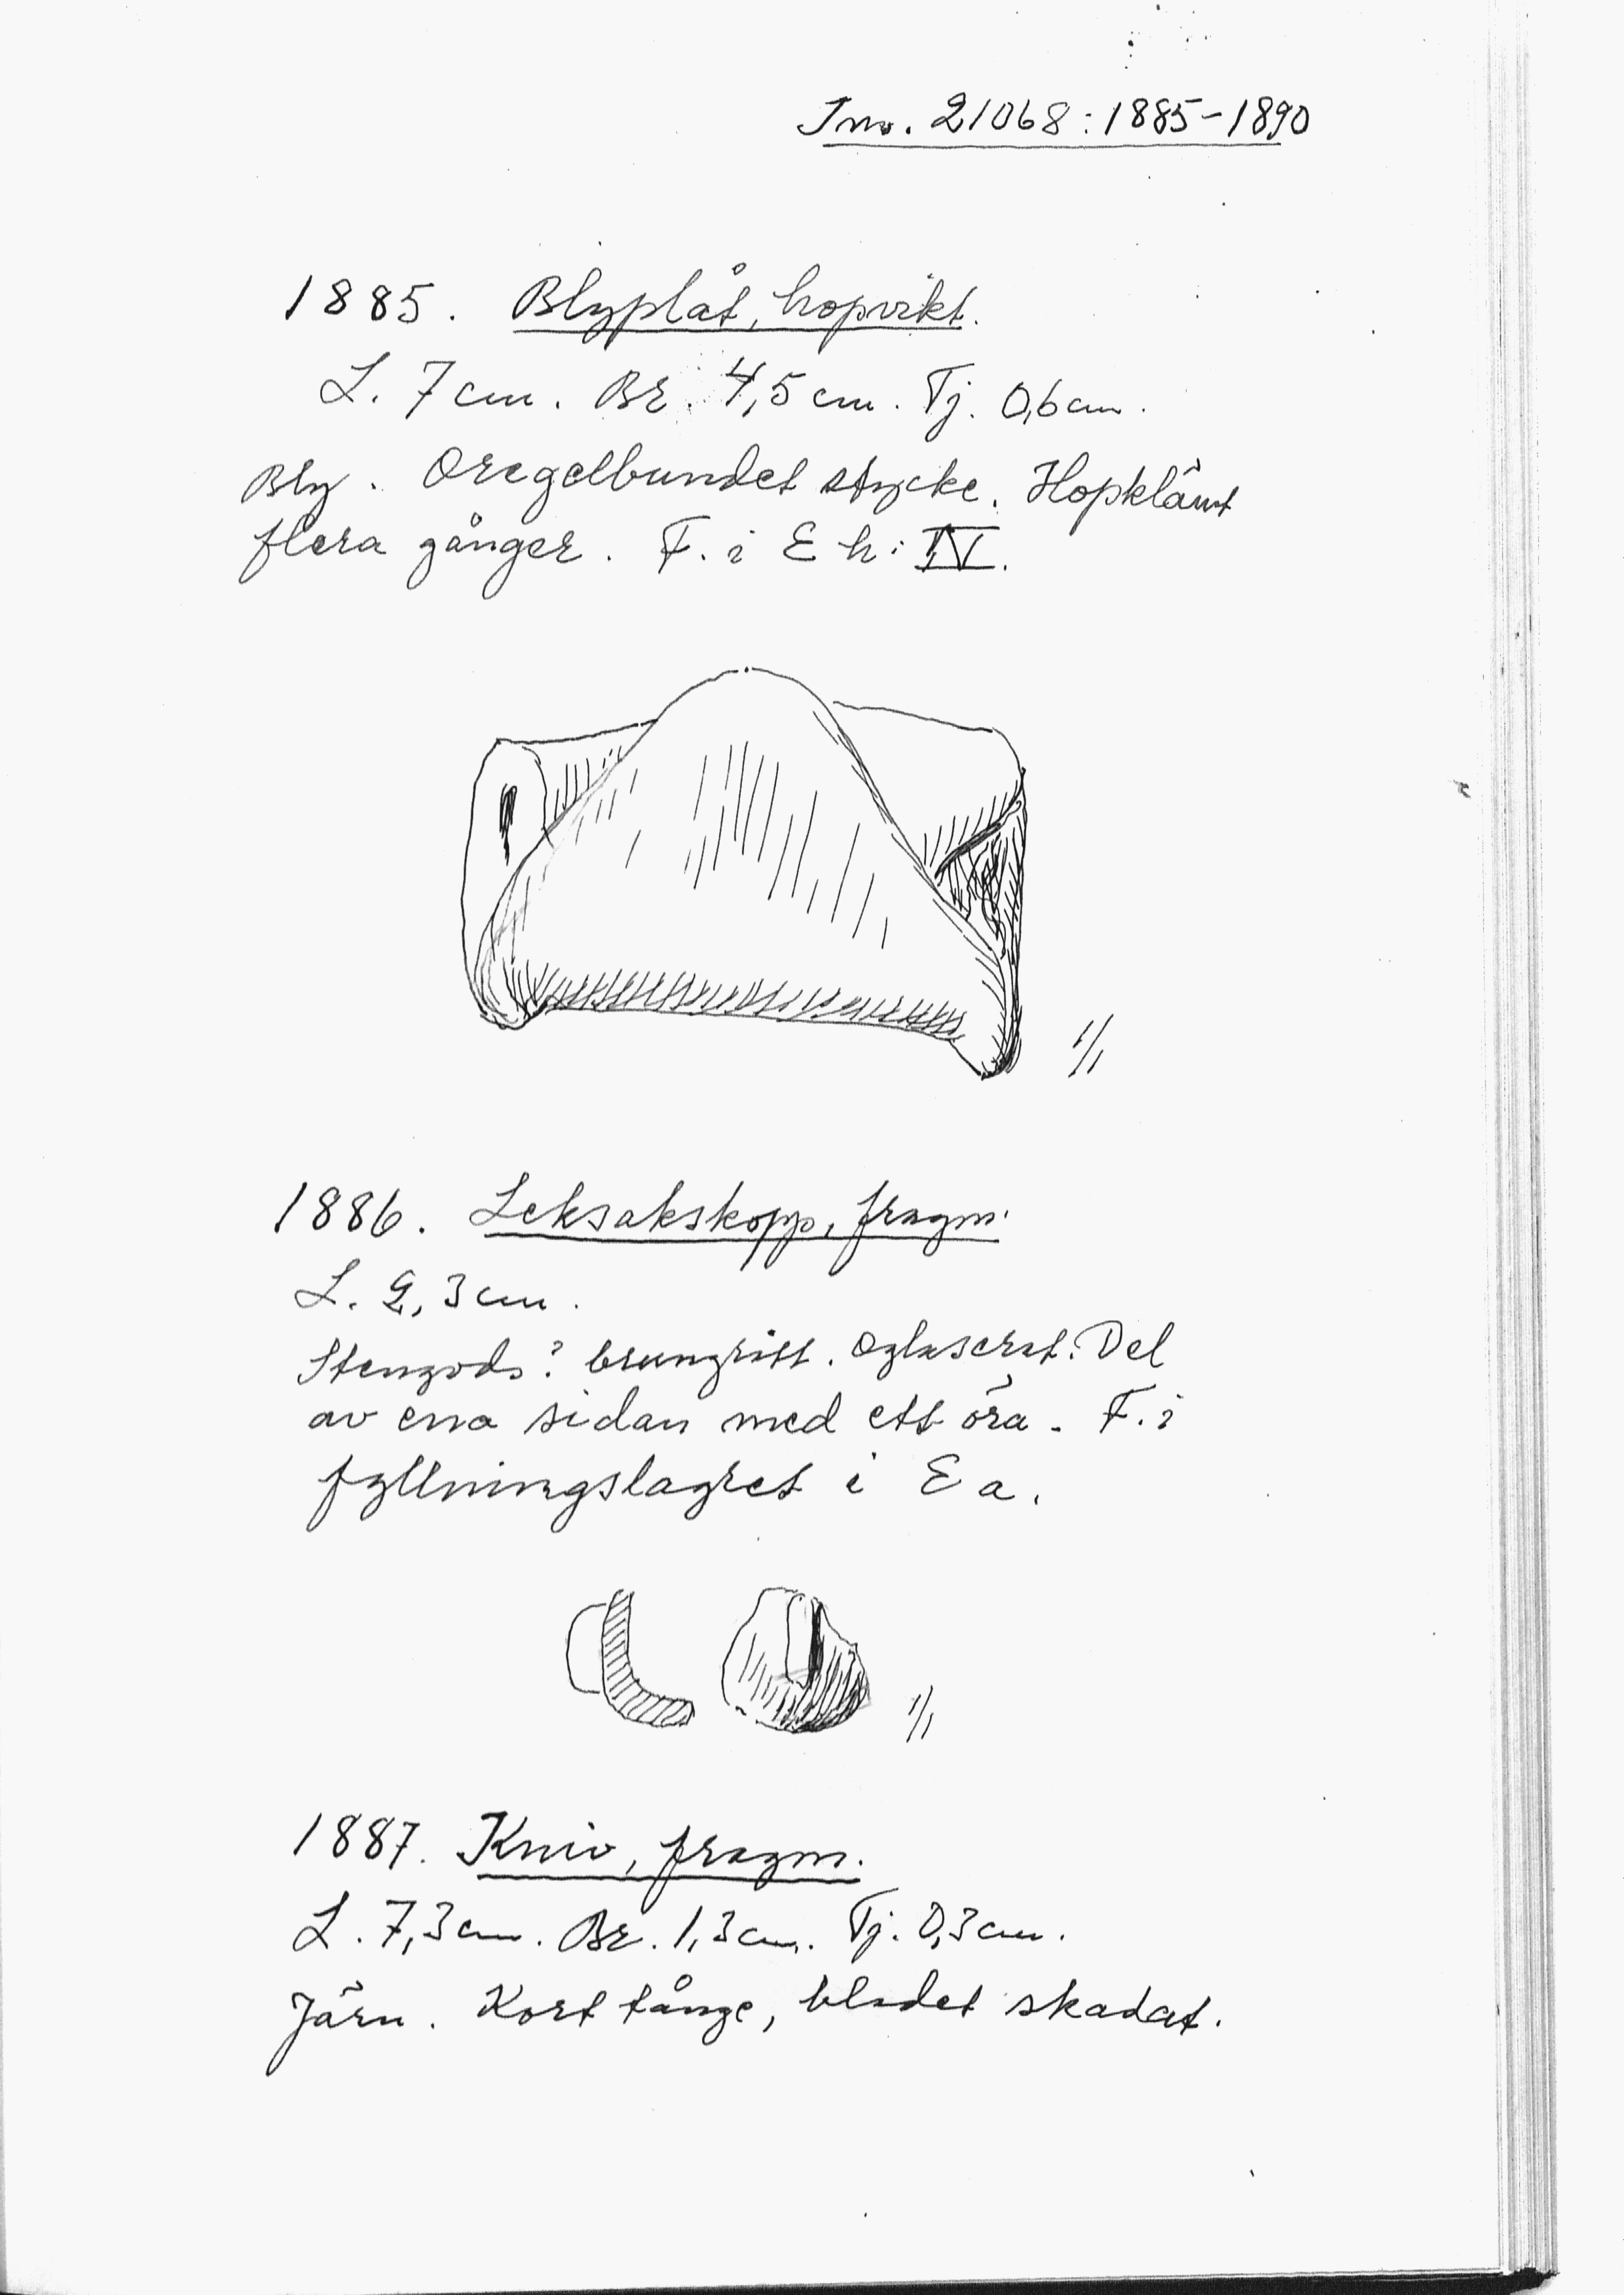 Inv. 21068:1885-1890
1885. Blyplåt, hopvikt.
L. 7 cm. Br. 4,5 cm. Tj. 0,6 cm.
Bly. Oregelbundet stycke. Hopklämt
flera gånger. F. i E h: IV.
1/1
1886. Leksakskopp, fragm.
L. 2,3 cm.
Stengods? brungrått. Oglaserat. Del
av ena sidan med ett öra. F. i
fyllningslagret i E a.
1/1
1887. Kniv, fragm.
L. 7,3 cm. Br. 1,3 cm. Tj. 0,3 cm.
Järn. Kort tånge, bladet skadat.